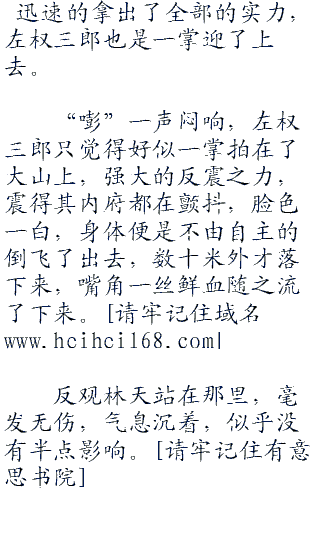 迅速的拿出了全部的实力，
左权三郎也是一掌迎了上
去。
“嘭”一声闷响，左权
三郎只觉得好似一掌拍在了
大山上，强大的反震之力，
震得其内府都在颤抖，脸色
一白，身体便是不由自主的
倒飞了出去，数十米外才落
下来，嘴角一丝鲜血随之流
了下来。[请牢记住域名
www.hcihci168.com|
反观林天站在那里，毫
发无伤，气息沉着，似乎没
有半点影响。[请牢记住有意
思书院]